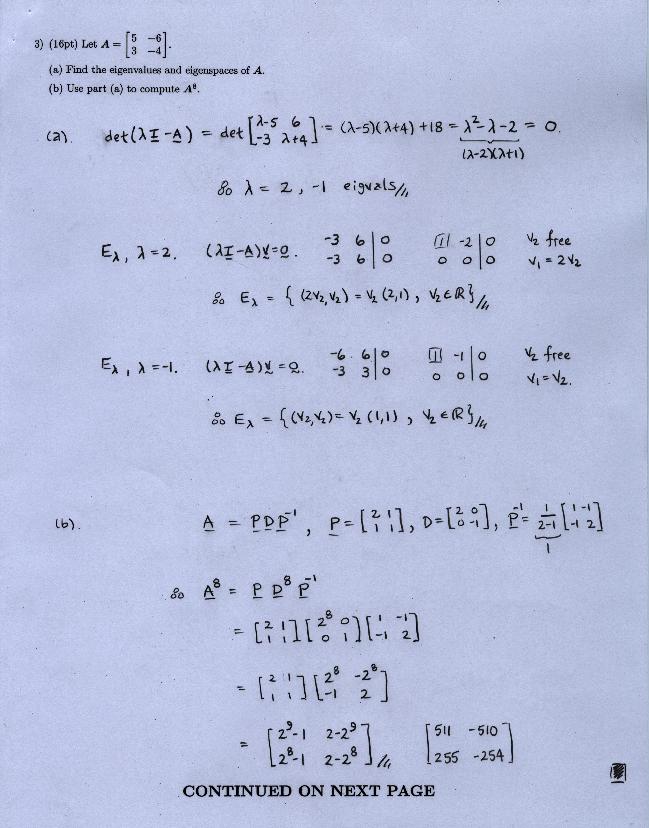 3) (16pt) Let A = [5 -6; 3 -4].
(a) Find the eigenvalues and eigenspaces of A.
(b) Use part (a) to compute A⁸.
(a). det(λI - A) = det [λ-5 6; -3 λ+4] = (λ-5)(λ+4) + 18 = λ² - λ - 2 = 0.
(λ-2)(λ+1)
∴ λ = 2, -1 eigvals //
E_λ, λ = 2. (λI - A)v = 0. -3 6 | 0 1 -2 | 0 v₂ free
-3 6 | 0 0 0 | 0 v₁ = 2v₂
∴ E_λ = { (2v₂, v₂) = v₂ (2,1), v₂ ∈ ℝ } //
E_λ, λ = -1. (λI - A)v = 0. -6 6 | 0 1 -1 | 0 v₂ free
-3 3 | 0 0 0 | 0 v₁ = v₂.
∴ E_λ = { (v₂, v₂) = v₂ (1,1), v₂ ∈ ℝ } //
(b). A = PDP⁻¹, P = [2 1; 1 1], D = [2 0; 0 -1], P⁻¹ = 1/(2-1) [1 -1; -1 2]
1
∴ A⁸ = P D⁸ P⁻¹
= [2 1; 1 1] [2⁸ 0; 0 1] [1 -1; -1 2]
= [2 1; 1 1] [2⁸ -2⁸; -1 2]
= [2⁹-1 2-2⁹; 2⁸-1 2-2⁸] // [511 -510; 255 -254]
CONTINUED ON NEXT PAGE